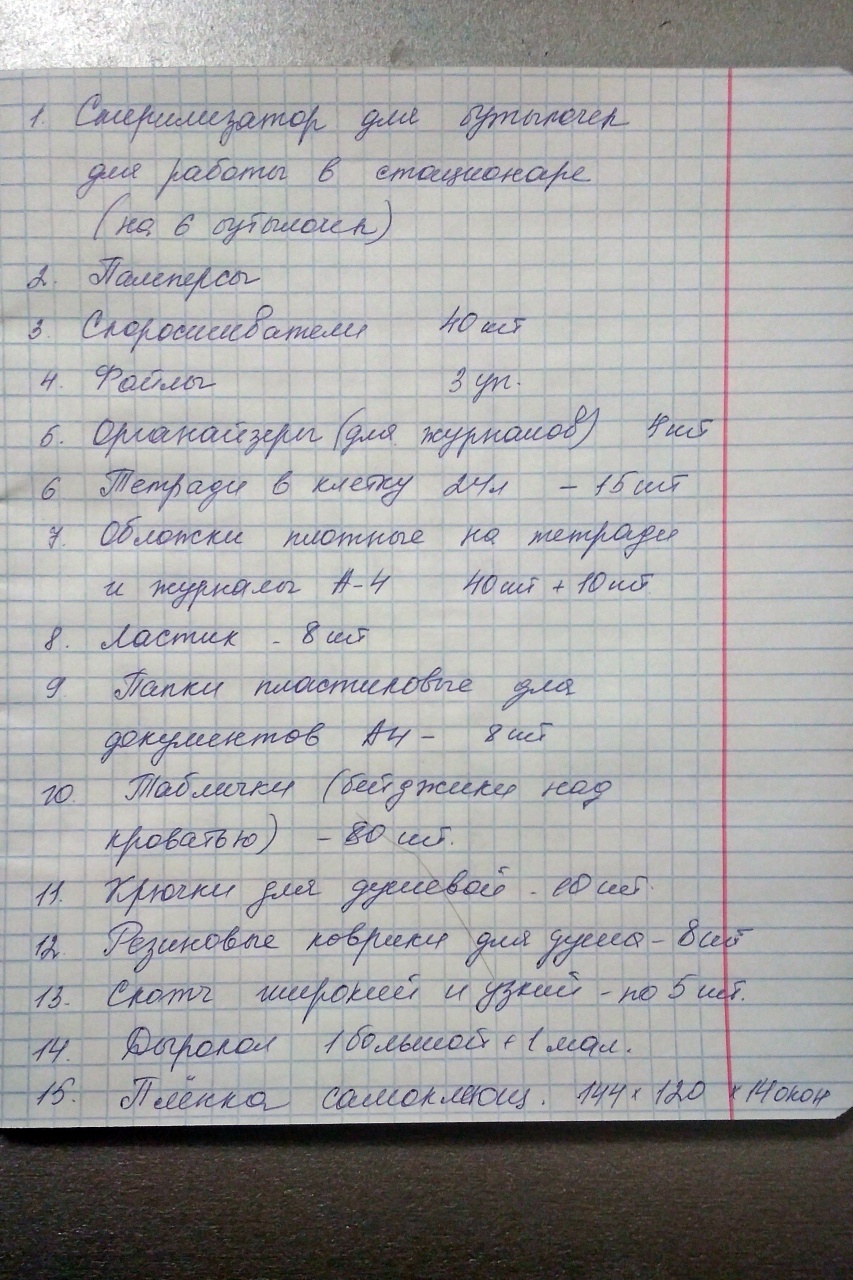 1. Стерилизатор для бутылочек
для работы в стационаре
(на 6 бутылочек)
2. Памперсы
3. Скоросшиватели 40 шт
4. Файлы 3 уп.
5. Органайзеры (для журналов) 4 шт
6 Тетради в клетку 24л - 15 шт
7. Обложки плотные на тетради
и журналы А-4 40 шт + 10 шт
8. Ластик - 8 шт
9 Папки пластиковые для
документов А4 - 8 шт
10. Таблички (бейджики над
кроватью) - 80 шт.
11. Крючки для душевой - 10 шт.
12. Резиновые коврики для душа - 8 шт
13. Скотч широкий и узкий - по 5 шт.
14. Дырокол 1 большой + 1 мал.
15. Плёнка самоклеющ. 144 х 120 х 14 окон